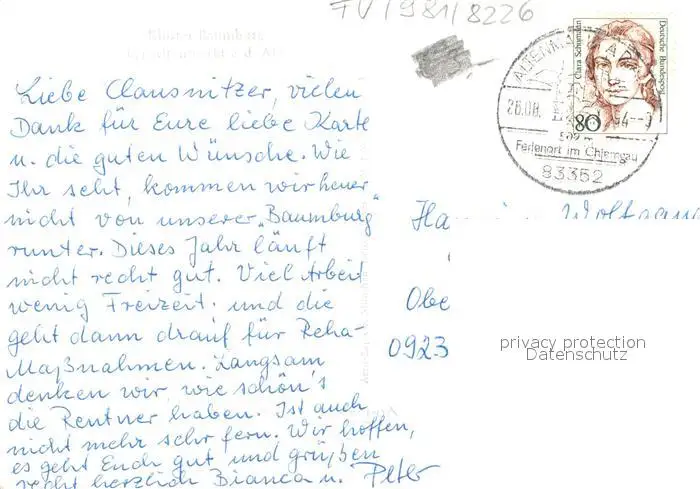 FV/981/8226
Kloster Baumburg
Liebe Clausnitzer, vielen
Dank für Eure liebe Karte
u. die guten Wünsche. Wie
Ihr seht, kommen wir heuer
nicht von unserer „Baumburg"
runter. Dieses Jahr läuft
nicht recht gut. Viel Arbeit
wenig Freizeit. und die
geht dann drauf für Reha-
Maßnahmen. Langsam
denken wir, wie schön's
die Rentner haben. Ist auch
nicht mehr sehr fern. Wir hoffen,
es geht Euch gut und grüßen
recht herzlich Bianca u. Peter
Clara Schumann
Deutsche Bundespost
80
ALTENMA
26.08.
94-9
502 m
Ferienort im Chiemgau
83352
Ha Wolfgang
Obe
0923
privacy protection
Datenschutz